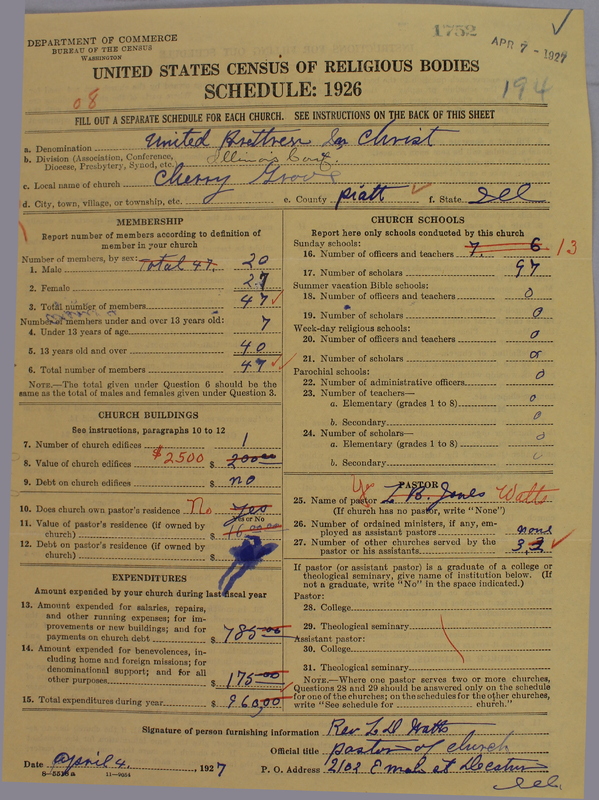 1752
APR 7 - 1927
DEPARTMENT OF COMMERCE
BUREAU OF THE CENSUS
WASHINGTON
UNITED STATES CENSUS OF RELIGIOUS BODIES
SCHEDULE: 1926
08
194
FILL OUT A SEPARATE SCHEDULE FOR EACH CHURCH. SEE INSTRUCTIONS ON THE BACK OF THIS SHEET
a. Denomination United Brethren In Christ
b. Division (Association, Conference, Diocese, Presbytery, Synod, etc.) Illinois Conf.
c. Local name of church Cherry Grove
d. City, town, village, or township, etc. e. County Piatt f. State Ill
MEMBERSHIP
Report number of members according to definition of
member in your church
Number of members, by sex: Total 47.
1. Male 20
2. Female 27
3. Total number of members 47
Number of members under and over 13 years old:
4. Under 13 years of age 7
5. 13 years old and over 40
6. Total number of members 47
NOTE.—The total given under Question 6 should be
same as the total of males and females given under Question 3.
CHURCH BUILDINGS
See instructions, paragraphs 10 to 12
7. Number of church edifices 1
8. Value of church edifices $2500 $
9. Debt on church edifices $ no
10. Does church own pastor's residence No Yes
Yes or No
11. Value of pastor's residence (if owned by
church) $
12. Debt on pastor's residence (if owned by
church) $
EXPENDITURES
Amount expended by your church during last fiscal year
13. Amount expended for salaries, repairs,
and other running expenses; for im-
provements or new buildings; and for
payments on church debt $ 785.00
14. Amount expended for benevolences, in-
cluding home and foreign missions; for
denominational support; and for all
other purposes $ 175.00
15. Total expenditures during year $ 960.00
CHURCH SCHOOLS
Report here only schools conducted by this church
Sunday schools:
16. Number of officers and teachers 7. 6 13
17. Number of scholars 97
Summer vacation Bible schools:
18. Number of officers and teachers 0
19. Number of scholars 0
Week-day religious schools:
20. Number of officers and teachers 0
21. Number of scholars 0
Parochial schools:
22. Number of administrative officers 0
23. Number of teachers—
a. Elementary (grades 1 to 8) 0
b. Secondary 0
24. Number of scholars—
a. Elementary (grades 1 to 8) 0
b. Secondary 0
PASTOR
25. Name of pastor L. B. Jones Watts
(If church has no pastor, write "None")
26. Number of ordained ministers, if any, em-
ployed as assistant pastors none
27. Number of other churches served by the
pastor or his assistants 3
If pastor (or assistant pastor) is a graduate of a college or
theological seminary, give name of institution below. (If
not a graduate, write "No" in the space indicated.)
Pastor:
28. College
29. Theological seminary
Assistant pastor:
30. College
31. Theological seminary
NOTE.—Where one pastor serves two or more churches,
Questions 28 and 29 should be answered only on the schedule
for one of the churches; on the schedules for the other churches,
write "See schedule for church."
Signature of person furnishing information Rev. L. D. Watts
Official title pastor of church
Date April 4., 1927 P. O. Address 2102 E Decatur
Ill.
8-5518a 11-9664